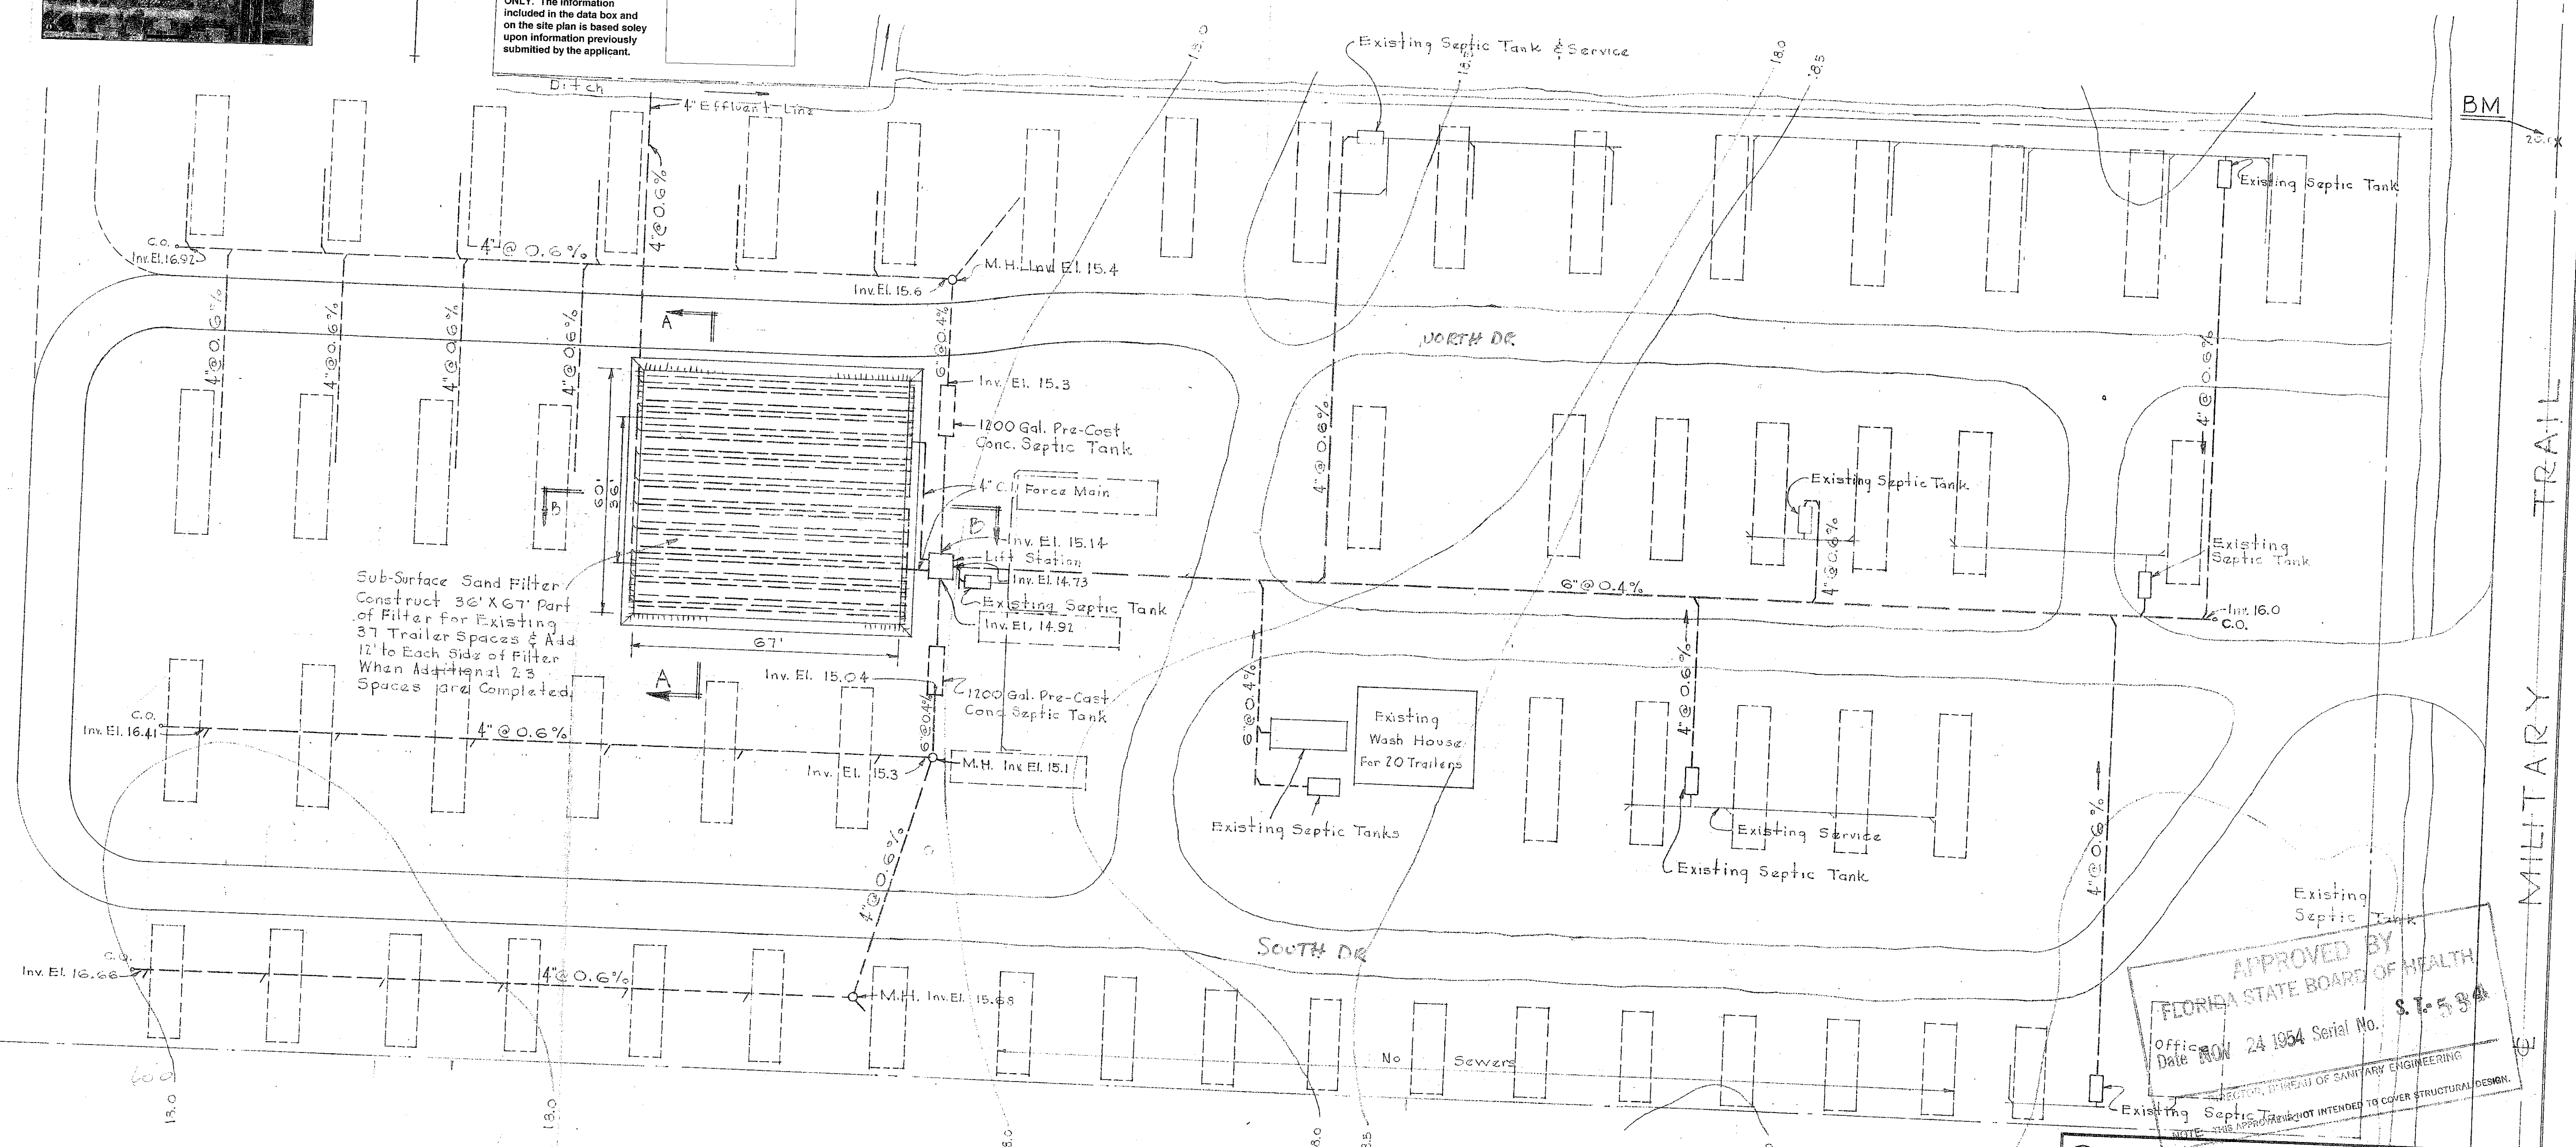 ONLY. The information
included in the data box and
on the site plan is based soley
upon information previously
submitied by the applicant.
Ditch
4" Effluent Line
4"@0.6%
Existing Septic Tank & Service
18.0
18.5
BM
Existing Septic Tank
C.O.
Inv. El. 16.92
4"@ 0.6%
M.H. Inv. El. 15.4
Inv. El. 15.6
4"@0.6%
4"@0.6%
4"@0.6%
4"@0.6%
6"@0.4%
A
NORTH DR.
Inv. El. 15.3
1200 Gal. Pre-Cast
Conc. Septic Tank
4" C.I. Force Main
60'
36'
B
B
Inv. El. 15.14
Lift Station
Inv. El. 14.73
Existing Septic Tank
Inv. El. 14.92
4"@0.6%
6"@0.4%
Existing Septic Tank
4"@0.6%
4"@0.6%
Existing
Septic Tank
Inv. 16.0
C.O.
Sub-Surface Sand Filter
Construct 36' X 67' Part
of Filter for Existing
37 Trailer Spaces & Add
12' to Each Side of Filter
When Additional 23
Spaces are Completed
67'
A
Inv. El. 15.04
1200 Gal. Pre-Cast
Conc. Septic Tank
6"@0.4%
C.O.
Inv. El. 16.41
4"@0.6%
Inv. El. 15.3
M.H. Inv. El. 15.1
6"@0.4%
Existing
Wash House
For 20 Trailers
Existing Septic Tanks
4"@0.6%
Existing Service
Existing Septic Tank
4"@0.6%
4"@0.6%
SOUTH DR
C.O.
Inv. El. 16.66
4"@0.6%
M.H. Inv. El. 15.68
No Sewers
Existing
Septic Tank
MILITARY TRAIL
Office
APPROVED BY
FLORIDA STATE BOARD OF HEALTH
Date NOV 24 1954 Serial No. S.T.-534
DIRECTOR, BUREAU OF SANITARY ENGINEERING
NOTE: THIS APPROVAL IS NOT INTENDED TO COVER STRUCTURAL DESIGN.
Existing Septic Tank
18.0
18.0